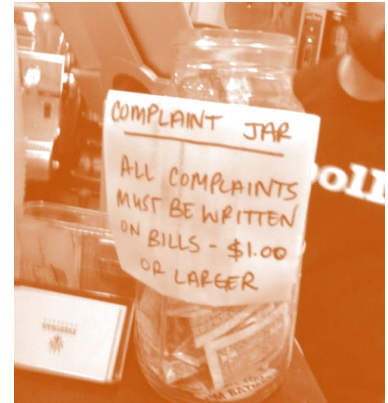 COMPLAINT JAR
ALL COMPLAINTS
MUST BE WRITTEN
ON BILLS - $1.00
OR LARGER
oll